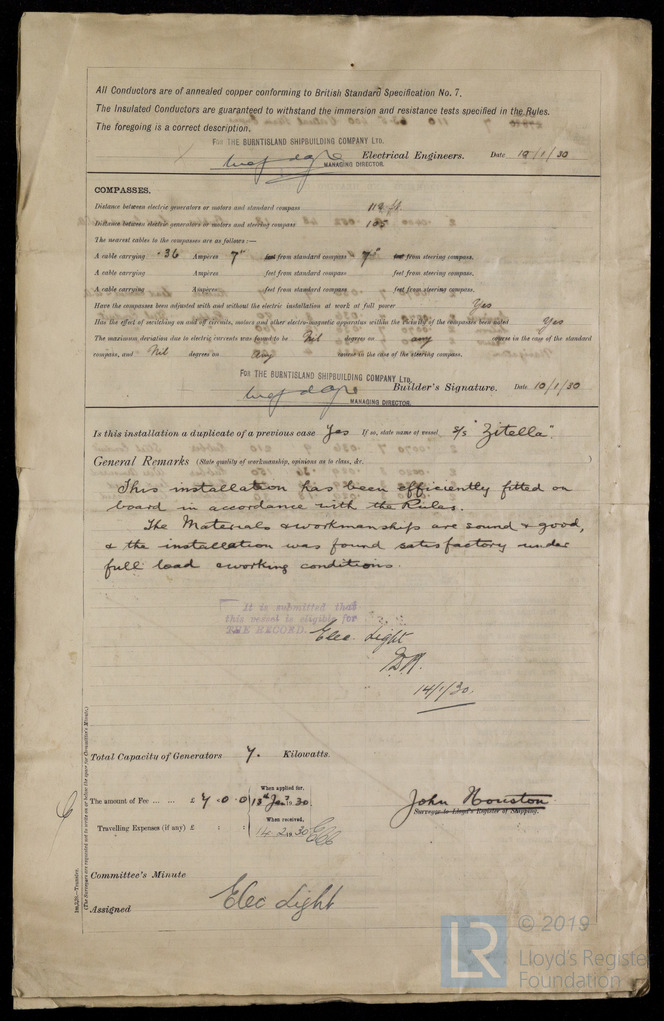 All Conductors are of annealed copper conforming to British Standard Specification No. 7.
The Insulated Conductors are guaranteed to withstand the immersion and resistance tests specified in the Rules.
The foregoing is a correct description.
FOR THE BURNTISLAND SHIPBUILDING COMPANY LTD.
Electrical Engineers. Date 10/1/30
MANAGING DIRECTOR.
COMPASSES.
Distance between electric generators or motors and standard compass 112 ft
Distance between electric generators or motors and steering compass 105
The nearest cables to the compasses are as follows:—
A cable carrying .36 Ampères 7" feet from standard compass 7" feet from steering compass.
A cable carrying Ampères feet from standard compass feet from steering compass.
A cable carrying Ampères feet from standard compass feet from steering compass.
Have the compasses been adjusted with and without the electric installation at work at full power Yes
Has the effect of switching on and off circuits, motors and other electro-magnetic apparatus within the vicinity of the compasses been noted Yes
The maximum deviation due to electric currents was found to be Nil degrees on any course in the case of the standard
compass, and Nil degrees on any course in the case of the steering compass.
FOR THE BURNTISLAND SHIPBUILDING COMPANY LTD.
Builder's Signature. Date 10/1/30
MANAGING DIRECTOR.
Is this installation a duplicate of a previous case Yes If so, state name of vessel s/s "Zitella".
General Remarks (State quality of workmanship, opinions as to class, &c. )
This installation has been efficiently fitted on
board in accordance with the Rules.
The Materials & workmanship are sound & good,
& the installation was found satisfactory under
full load & working conditions.
It is submitted that
this vessel is eligible for
THE RECORD. Elec. Light
14/1/30.
Total Capacity of Generators 7. Kilowatts.
The amount of Fee ... ... £ 7 . 0 . 0
When applied for,
13th Jan 1930
Travelling Expenses (if any) £ : :
When received,
14.2.1930
John Houston
Surveyor to Lloyd's Register of Shipping.
Committee's Minute
Assigned Elec Light
(The Surveyors are requested not to write on or below the space for Committee's Minute.)
© 2019
LR
Lloyd's Register
Foundation